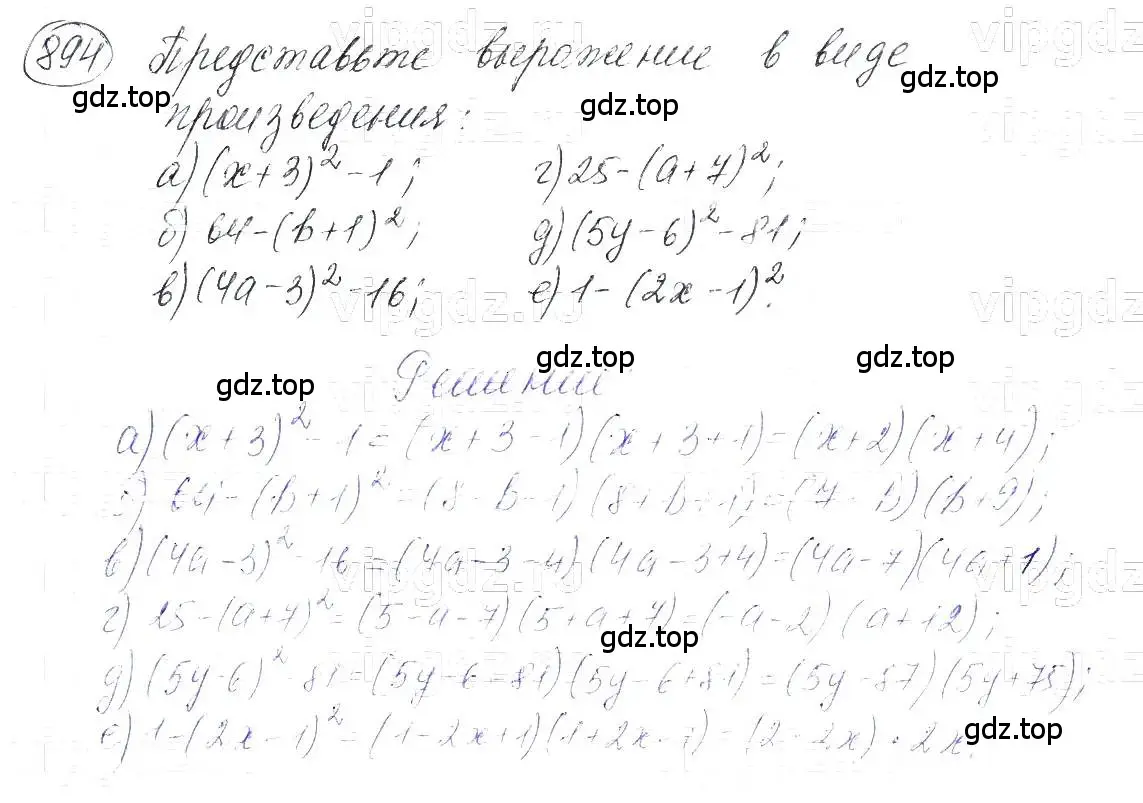 894 Представьте выражение в виде
произведения:
а) (x+3)² - 1; г) 25 - (a+7)²;
б) 64 - (b+1)²; д) (5y - 6)² - 81;
в) (4a - 3)² - 16; е) 1 - (2x - 1)².
Решение
а) (x+3)² - 1 = (x+3-1)(x+3+1) = (x+2)(x+4);
б) 64 - (b+1)² = (8-b-1)(8+b+1) = (7-b)(b+9);
в) (4a-3)² - 16 = (4a-3-4)(4a-3+4) = (4a-7)(4a+1);
г) 25 - (a+7)² = (5-a-7)(5+a+7) = (-a-2)(a+12);
д) (5y-6)² - 81 = (5y-6-81)(5y-6+81) = (5y-87)(5y+75);
е) 1 - (2x-1)² = (1-2x+1)(1+2x-1) = (2-2x)·2x.
gdz.top
gdz.top
gdz.top
gdz.top
gdz.top
gdz.top
gdz.top
gdz.top
vipgdz.ru
vipgdz.ru
vipgdz.ru
vipgdz.ru
vipgdz.ru
vipgdz.ru